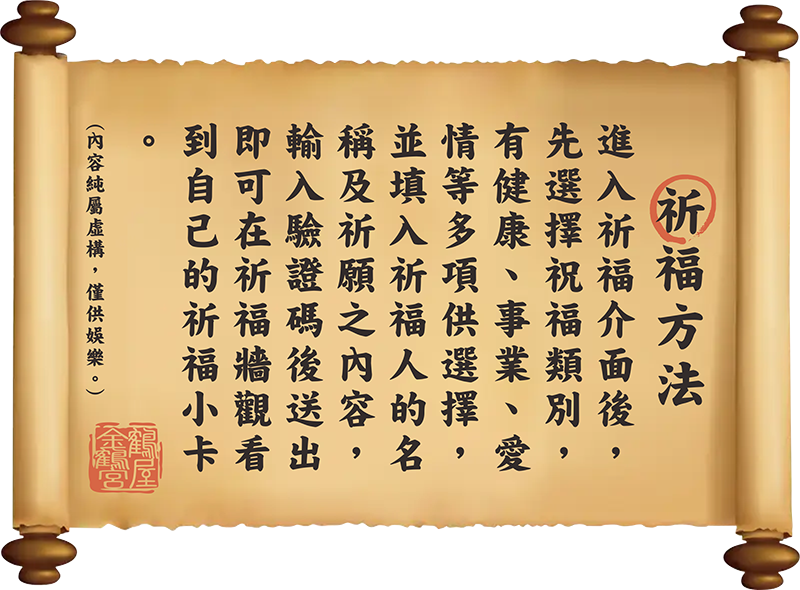 祈福方法
進入祈福介面後，
先選擇祝福類別，
有健康、事業、愛
情等多項供選擇，
並填入祈福人的名
稱及祈願之內容，
輸入驗證碼後送出
即可在祈福牆觀看
到自己的祈福小卡
。
（內容純屬虛構，僅供娛樂。）
鶴屋
金鶴宮